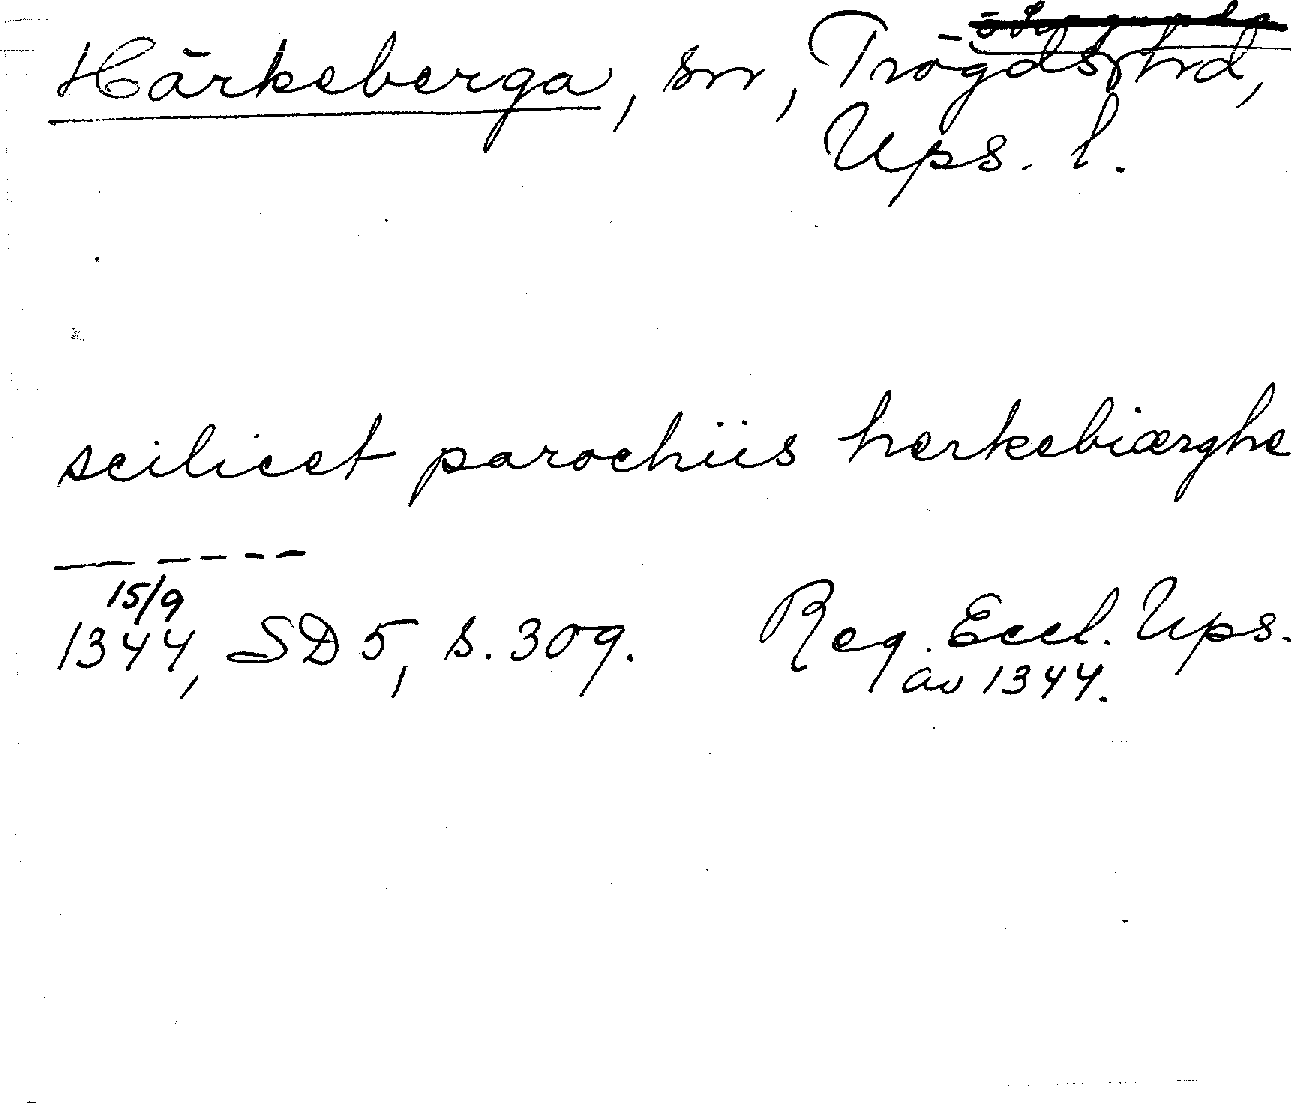 Härkeberga, sn, Trögds hd,
Ups. l.
scilicet parochiis herkebiærghe
— - - - -
15/9
1344, SD 5, s. 309. Reg. Eccl. Ups.
av 1344.